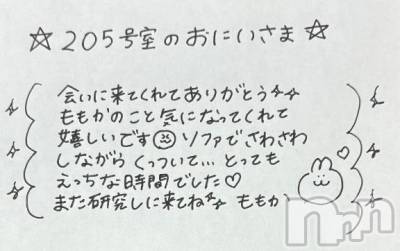 ☆205号室のおにいさま☆
会いに来てくれてありがとう
ももかのこと気になってくれて
嬉しいです ソファでさわさわ
しながら くっついて… とっても
えっちな時間でした♡
また研究しに来てね ももか